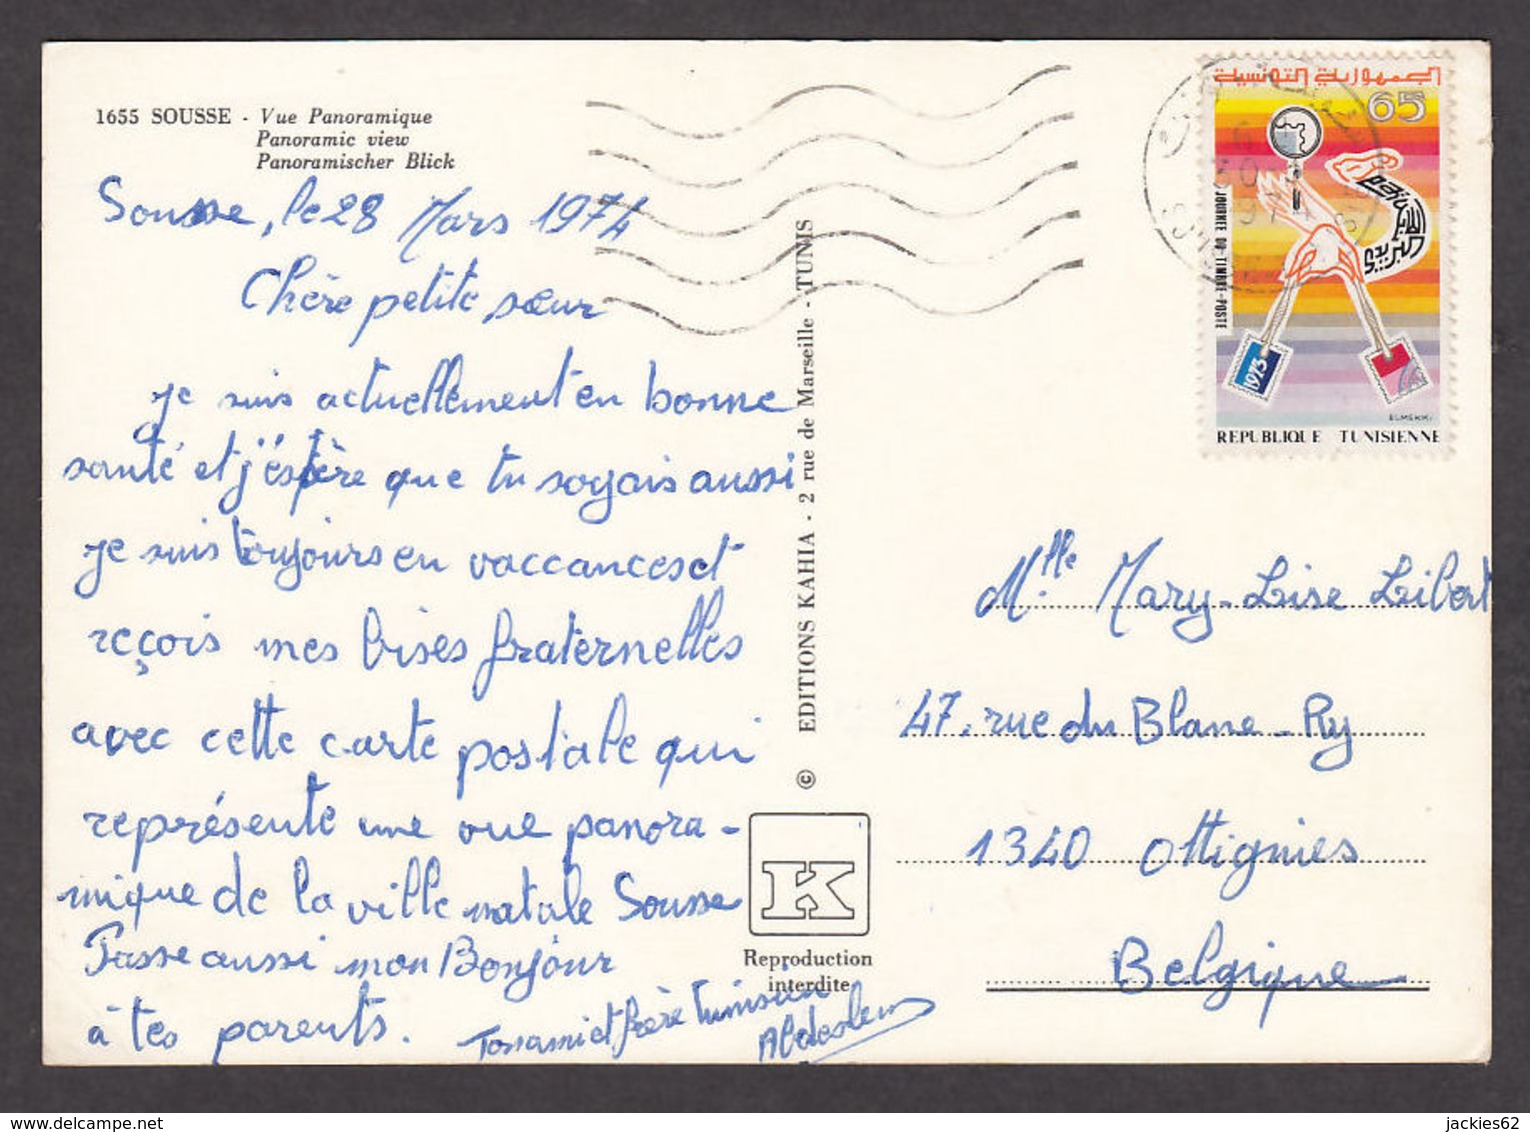 1655 SOUSSE - Vue Panoramique
Panoramic view
Panoramischer Blick
Sousse, le 28 Mars 1974
Chère petite sœur
je suis actuellement en bonne
santé et j'éspère que tu soyais aussi
je suis toujours en vaccances et
reçois mes bises fraternelles
avec cette carte postale qui
représente une vue panora-
mique de la ville natale Sousse
Passe aussi mon Bonjour
à tes parents.
Ton ami et frère tunisien
Abdeslem
© EDITIONS KAHIA - 2 rue de Marseille - TUNIS
K
Reproduction
interdite
الجمهورية التونسية
65
JOURNEE DU TIMBRE-POSTE
1973
ELMEKKI
REPUBLIQUE TUNISIENNE
Mlle Mary-Lise Libert
47, rue du Blanc-Ry
1340 Ottignies
Belgique
delcampe.net
jackies62